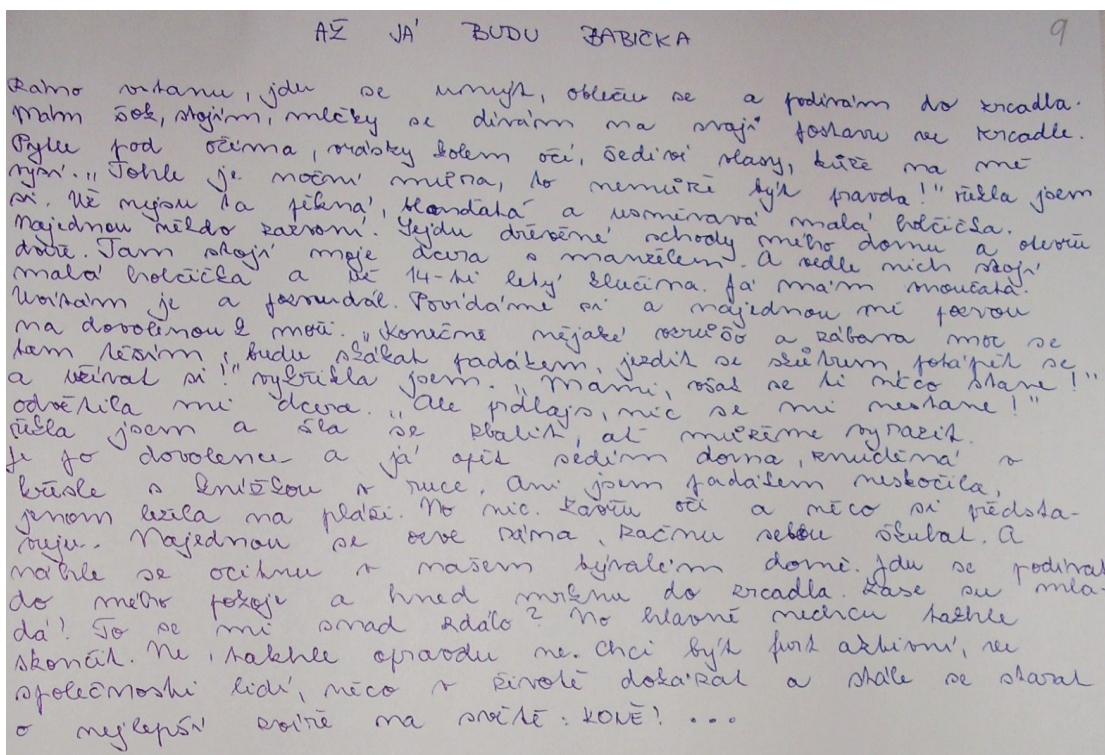 AŽ JÁ BUDU BABIČKA 9
Ráno vstanu, jdu se umýt, obleču se a podívám do zrcadla.
Mám šok, stojím, mlčky se dívám na svojí postavu ve zrcadle.
Pytle pod očima, vrásky kolem očí, šediví vlasy, kůže na mě
visí. „Tohle je noční můra, to nemůže být pravda!" řekla jsem
si. Už nejsu ta pěkná, blonďatá a usměvavá malá holčička.
Najednou někdo zazvoní. Sejdu dřevěné schody mého domu a otevřu
dveře. Tam stojí moje dcera s manželem. A vedle nich stojí
malá holčička a už 14-ti letý klučina. Já mám vnoučata.
Uvítám je a pozvu dál. Povídáme si a najednou mě pozvou
na dovolenou k moři. „Konečně nějaké vzrůšo a zábava moc se
tam těším, budu skákat padákem, jezdit se skůtrem, potápět se
a užívat si!" vykřikla jsem. „Mami, však se ti něco stane!"
odvětila mi dcera. „Ale prdlajs, nic se mi nestane!"
řekla jsem a šla se zbalit, ať můžeme vyrazit.
Je po dovolenc a já opět sedím doma, znuděná v
křesle s knížkou v ruce. Ani jsem padákem neskočila,
jenom ležela na pláži. No nic. Zavřu oči a něco si předsta-
vuju. Najednou se ozve rána, začnu sebou škubat. A
náhle se ocitnu v našem bývalém domě. Jdu se podívat
do mého pokoje a hned mrknu do zrcadla. Zase su mla-
dá! To se mi snad zdálo? No hlavně nechcu takhle
skončit. Ne, takhle opravdu ne. Chci být furt aktivní, ve
společnosti lidí, něco v životě dokázat a stále se starat
o nejlepší zvíře na světě: KONĚ! ...